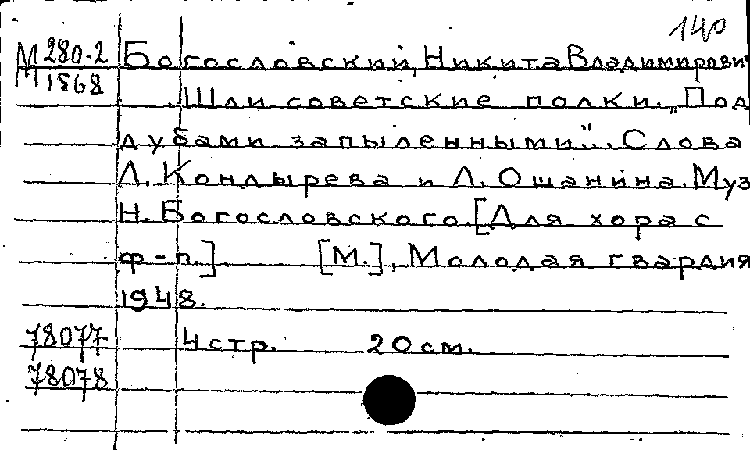 140
М 280-2 Богословский, Никита Владимирович
М 1868 Шли советские полки. „Под
дубами запыленными"... Слова
Л. Кондырева и Л. Ошанина. Муз
Н. Богословского. [Для хора с
ф-п.]. [М.], Молодая гвардия
1948.
78077 4 стр. 20 см.
78078